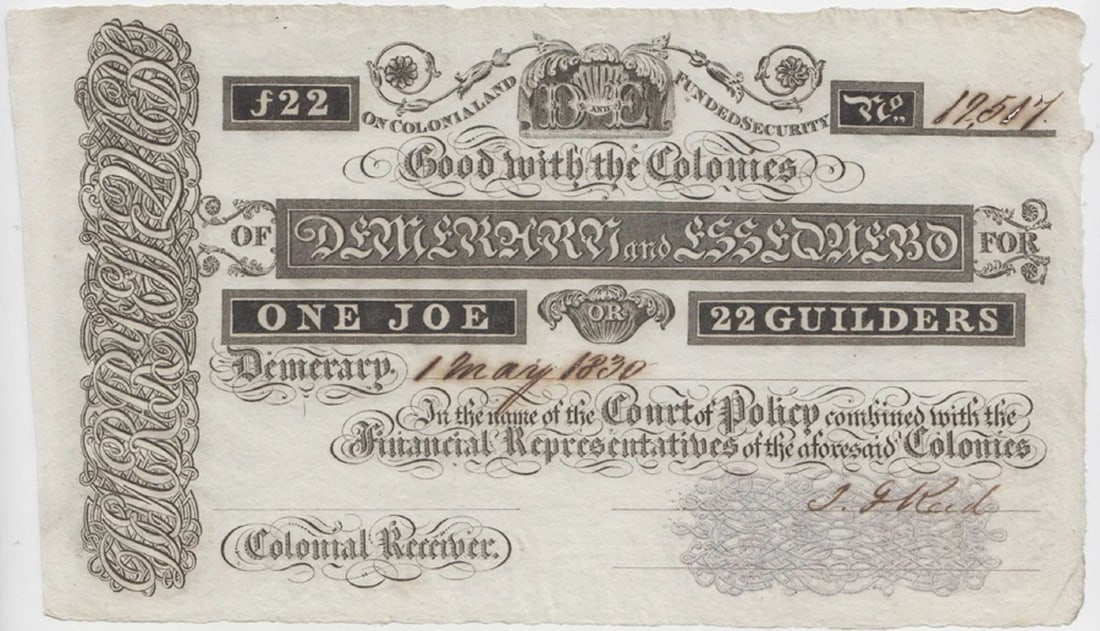 ƒ22
ON COLONIAL AND
D AND E
FUNDED SECURITY
No. 12,517.
Good with the Colonies
OF DEMERARY and ESSEQUEBO FOR
ONE JOE OR 22 GUILDERS
Demerary. 1 May 1830
In the name of the Court of Policy combined with the
Financial Representatives of the aforesaid Colonies
Colonial Receiver.